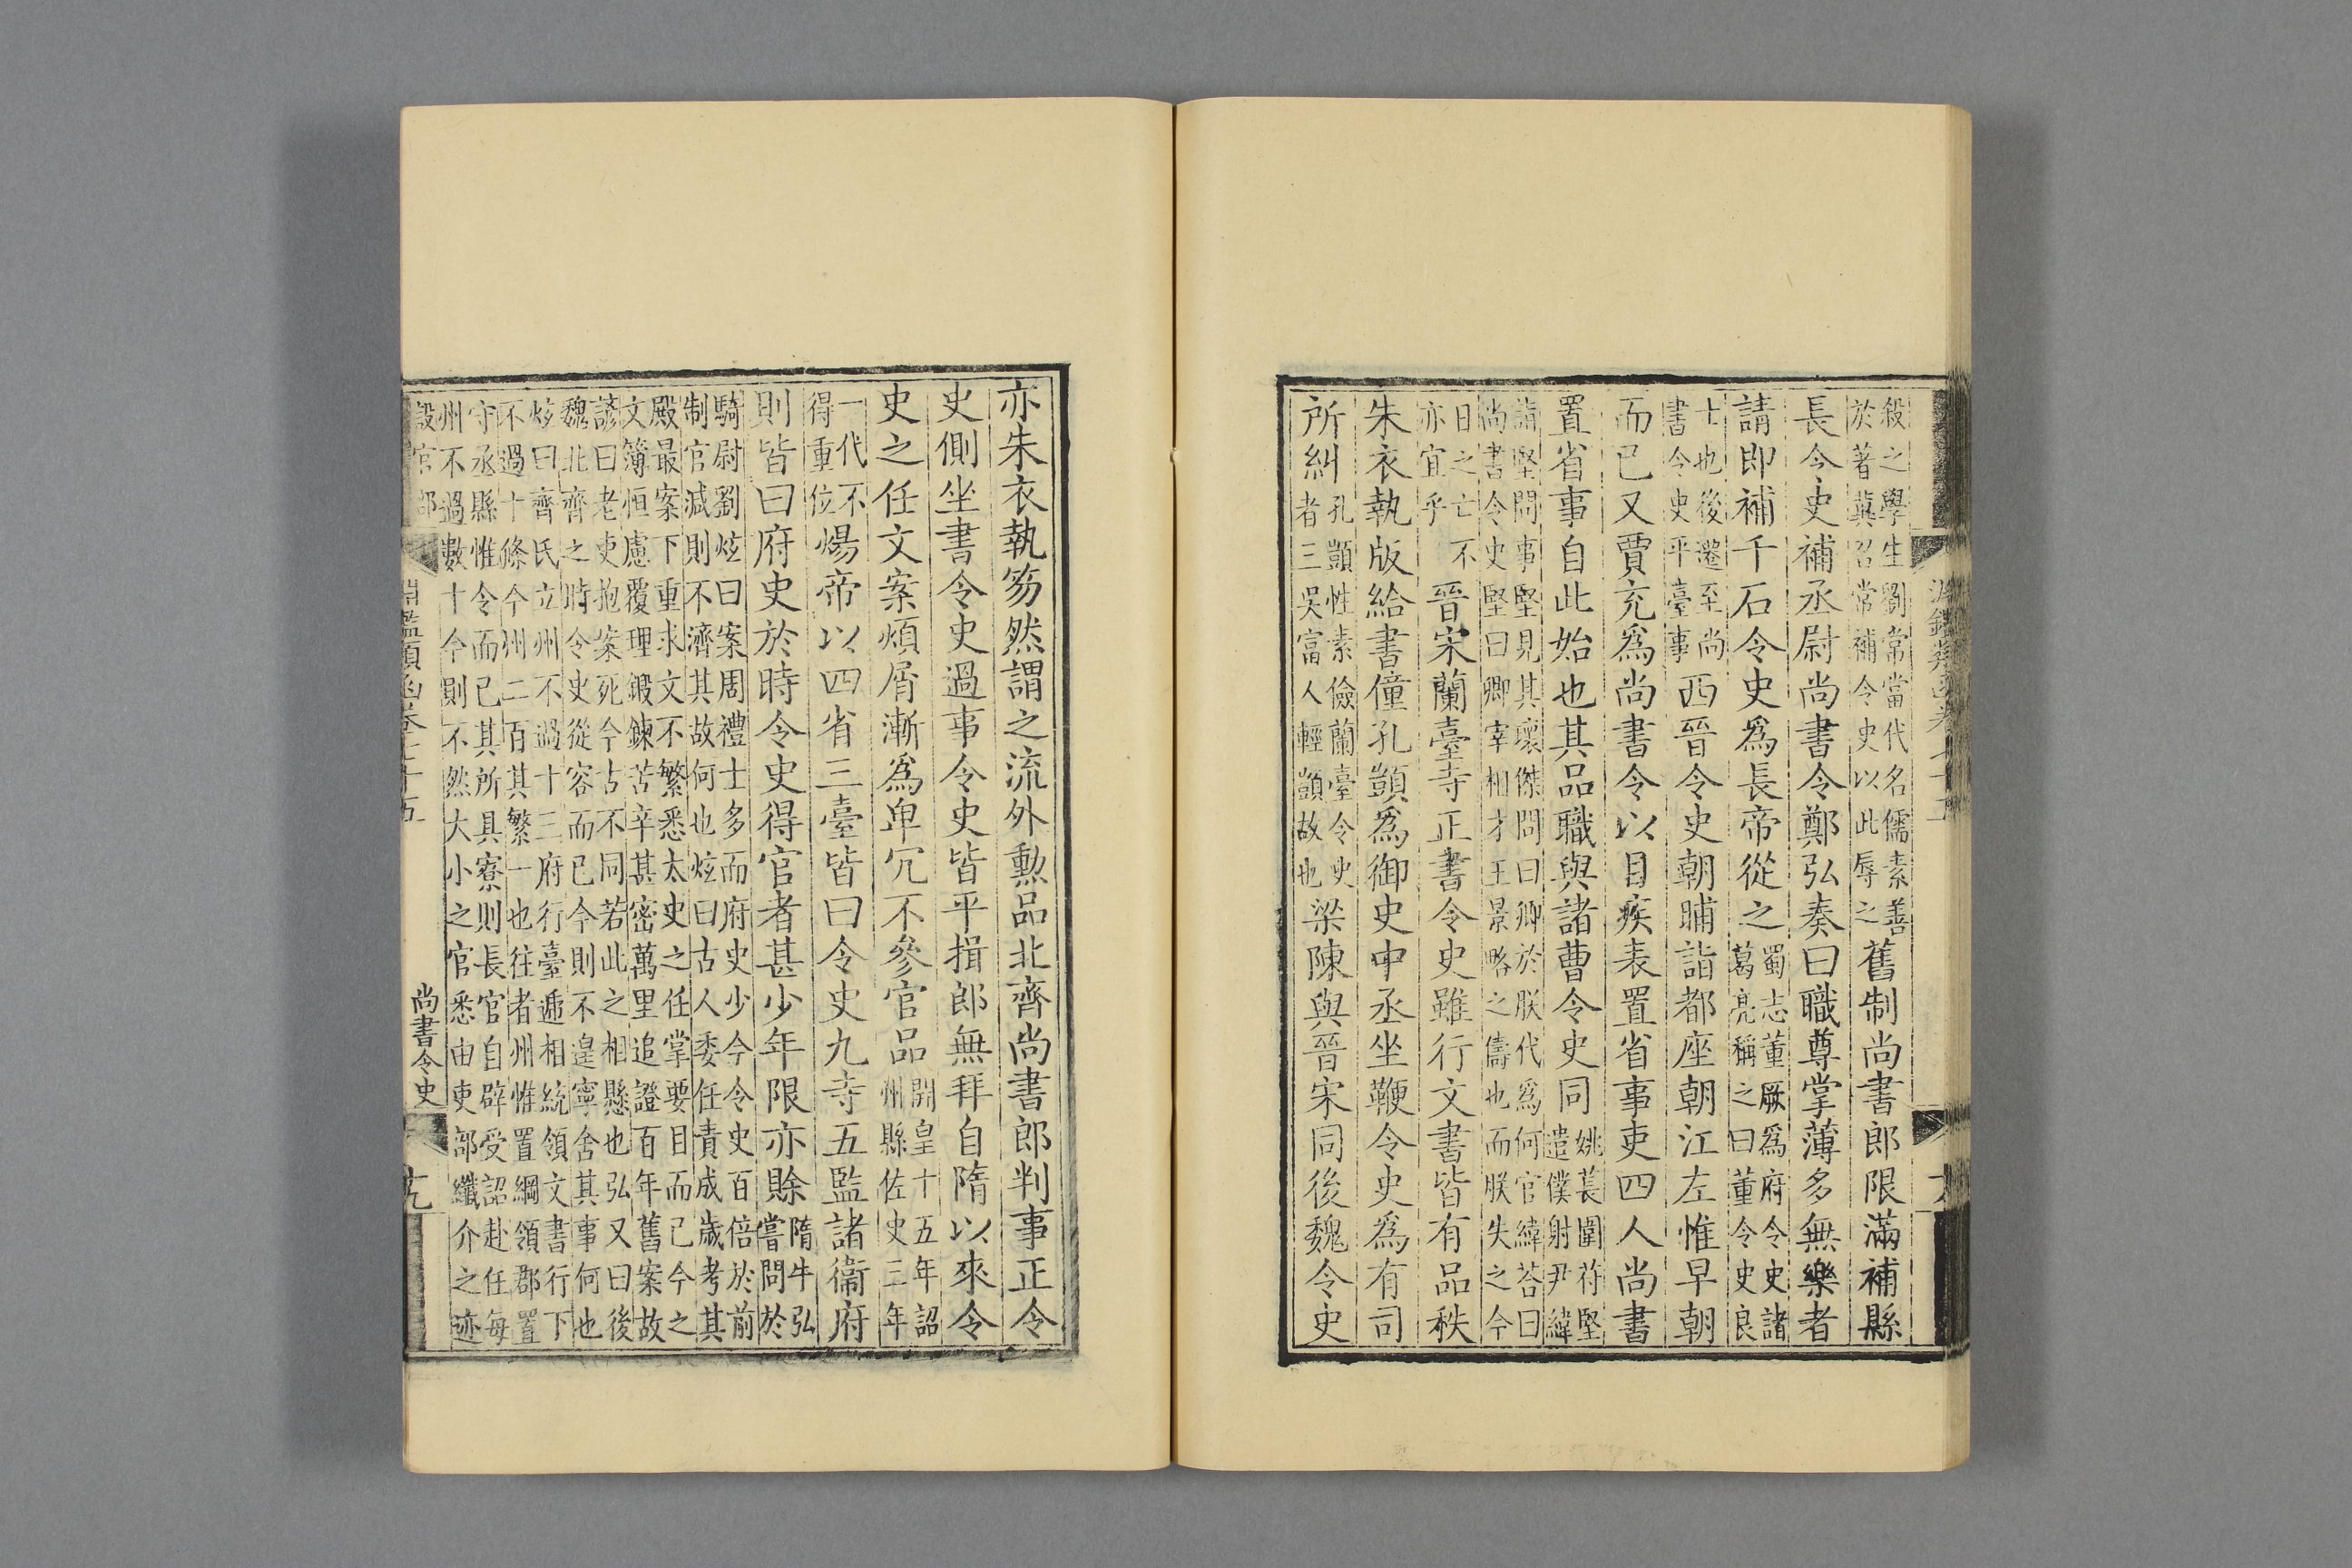 殺之學生劉常當代名儒素善
於著冀召常補令史以此辱之
舊制尚書郎限滿補縣
長令史補丞尉尚書令鄭弘奏曰職尊掌薄多無樂者
請即補千石令史爲長帝從之
蜀志董厥爲府令史諸
葛亮稱之曰董令史良
士也後遷至尚
書令史平臺事
西晉令史朝晡詣都座朝江左惟早朝
而已又賈充爲尚書令以目疾表置省事吏四人尚書
置省事自此始也其品職與諸曹令史同
姚萇圍苻堅
遣僕射尹緯
詣堅問事堅見其瓌傑問曰卿於朕代爲何官緯荅曰
尚書令史堅曰卿宰相才王景略之儔也而朕失之今
日之亡不
亦宜乎
晉宋蘭臺寺正書令史雖行文書皆有品秩
朱衣執版給書僮孔顗爲御史中丞坐鞭令史爲有司
所糾
孔顗性素儉蘭臺令史
者三吳富人輕顗故也
梁陳與晉宋同後魏令史
亦朱衣執笏然謂之流外勲品北齊尚書郎判事正令
史側坐書令史過事令史皆平揖郎無拜自隋以來令
史之任文案煩屑漸爲卑冗不參官品
開皇十五年詔
州縣佐史三年
一代不
得重位
煬帝以四省三臺皆曰令史九寺五監諸衞府
則皆曰府史於時令史得官者甚少年限亦賒
隋牛弘
嘗問於
騎尉劉炫曰案周禮士多而府史少今令史百倍於前
制官減則不濟其故何也炫曰古人委任責成歲考其
殿最案下重求文不繁悉太史之任掌要目而已今之
文簿恒慮覆理鍛鍊苦辛甚密萬里追證百年舊案故
諺曰老吏抱案死今古不同若此之相懸也弘又曰後
魏北齊之時令史從容而已今則不遑寧舍其事何也
炫曰齊氏立州不過十三府行臺遞相統領文書行下
不過十條今州二百其繁一也往者州惟置綱領郡置
守丞縣惟令而已其所具寮則長官自辟受詔赴任每
州不過數十今則不然大小之官悉由吏部纖介之迹
淵鑑類函卷七十五
尚書令史
十九